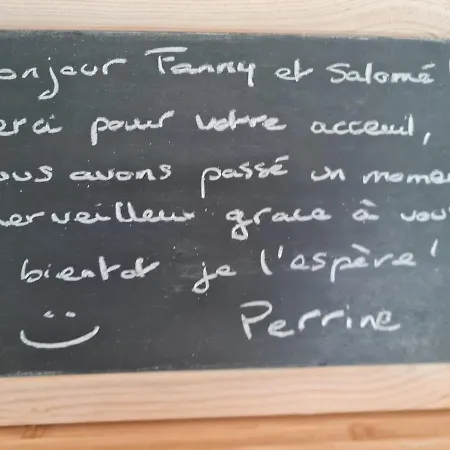 onjour Fanny et Salomé !
erci pour votre acceuil,
ous avons passé un momen
erveilleux grace à vou
bientot je l'espère !
Perrine